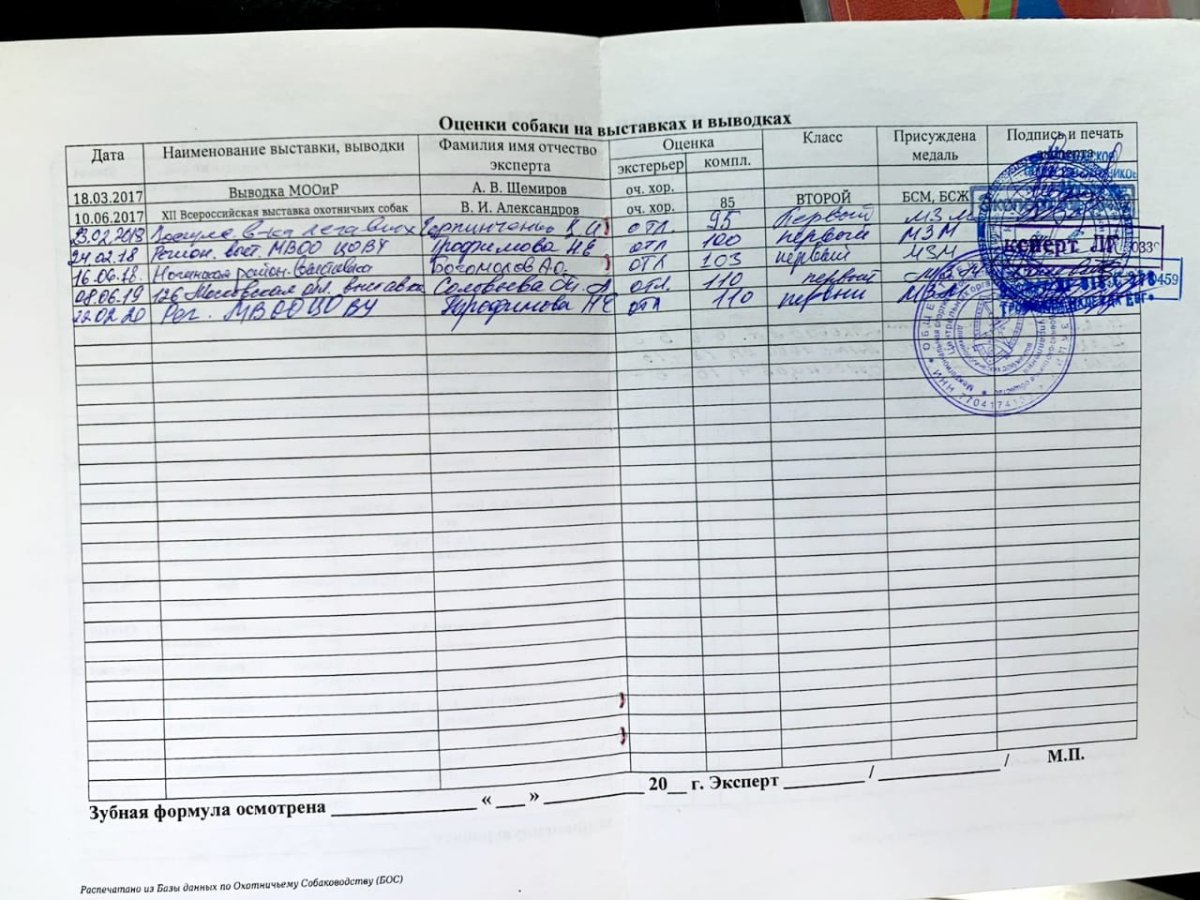 Оценки собаки на выставках и выводках
Дата Наименование выставки, выводки Фамилия имя отчество эксперта Оценка Класс Присуждена медаль Подпись и печать эксперта
экстерьер компл.
18.03.2017 Выводка МООиР А. В. Щемиров оч. хор.
10.06.2017 XII Всероссийская выставка охотничьих собак В. И. Александров оч. хор. 85 ВТОРОЙ БСМ, БСЖ
23.02.2018 отл. 95 Первый МЗМ
24.02.18 Регион. выст. МВОО ЦОВУ Трофимова НЕ отл 100 первый МЗМ
16.06.18. Ногинская район. выставка Богомолов АО. отл 103 первый МЗМ
08.06.19 126 Московская обл. выставка Соловьева отл. 110 первый
22.02.20 Рег. МВООЦОВУ Трофимова НЕ отл 110 первый
эксперт
459
Зубная формула осмотрена ________________ « ___ » ___________ 20__ г. Эксперт _________ / _____________ / М.П.
Распечатано из Базы данных по Охотничьему Собаководству (БОС)